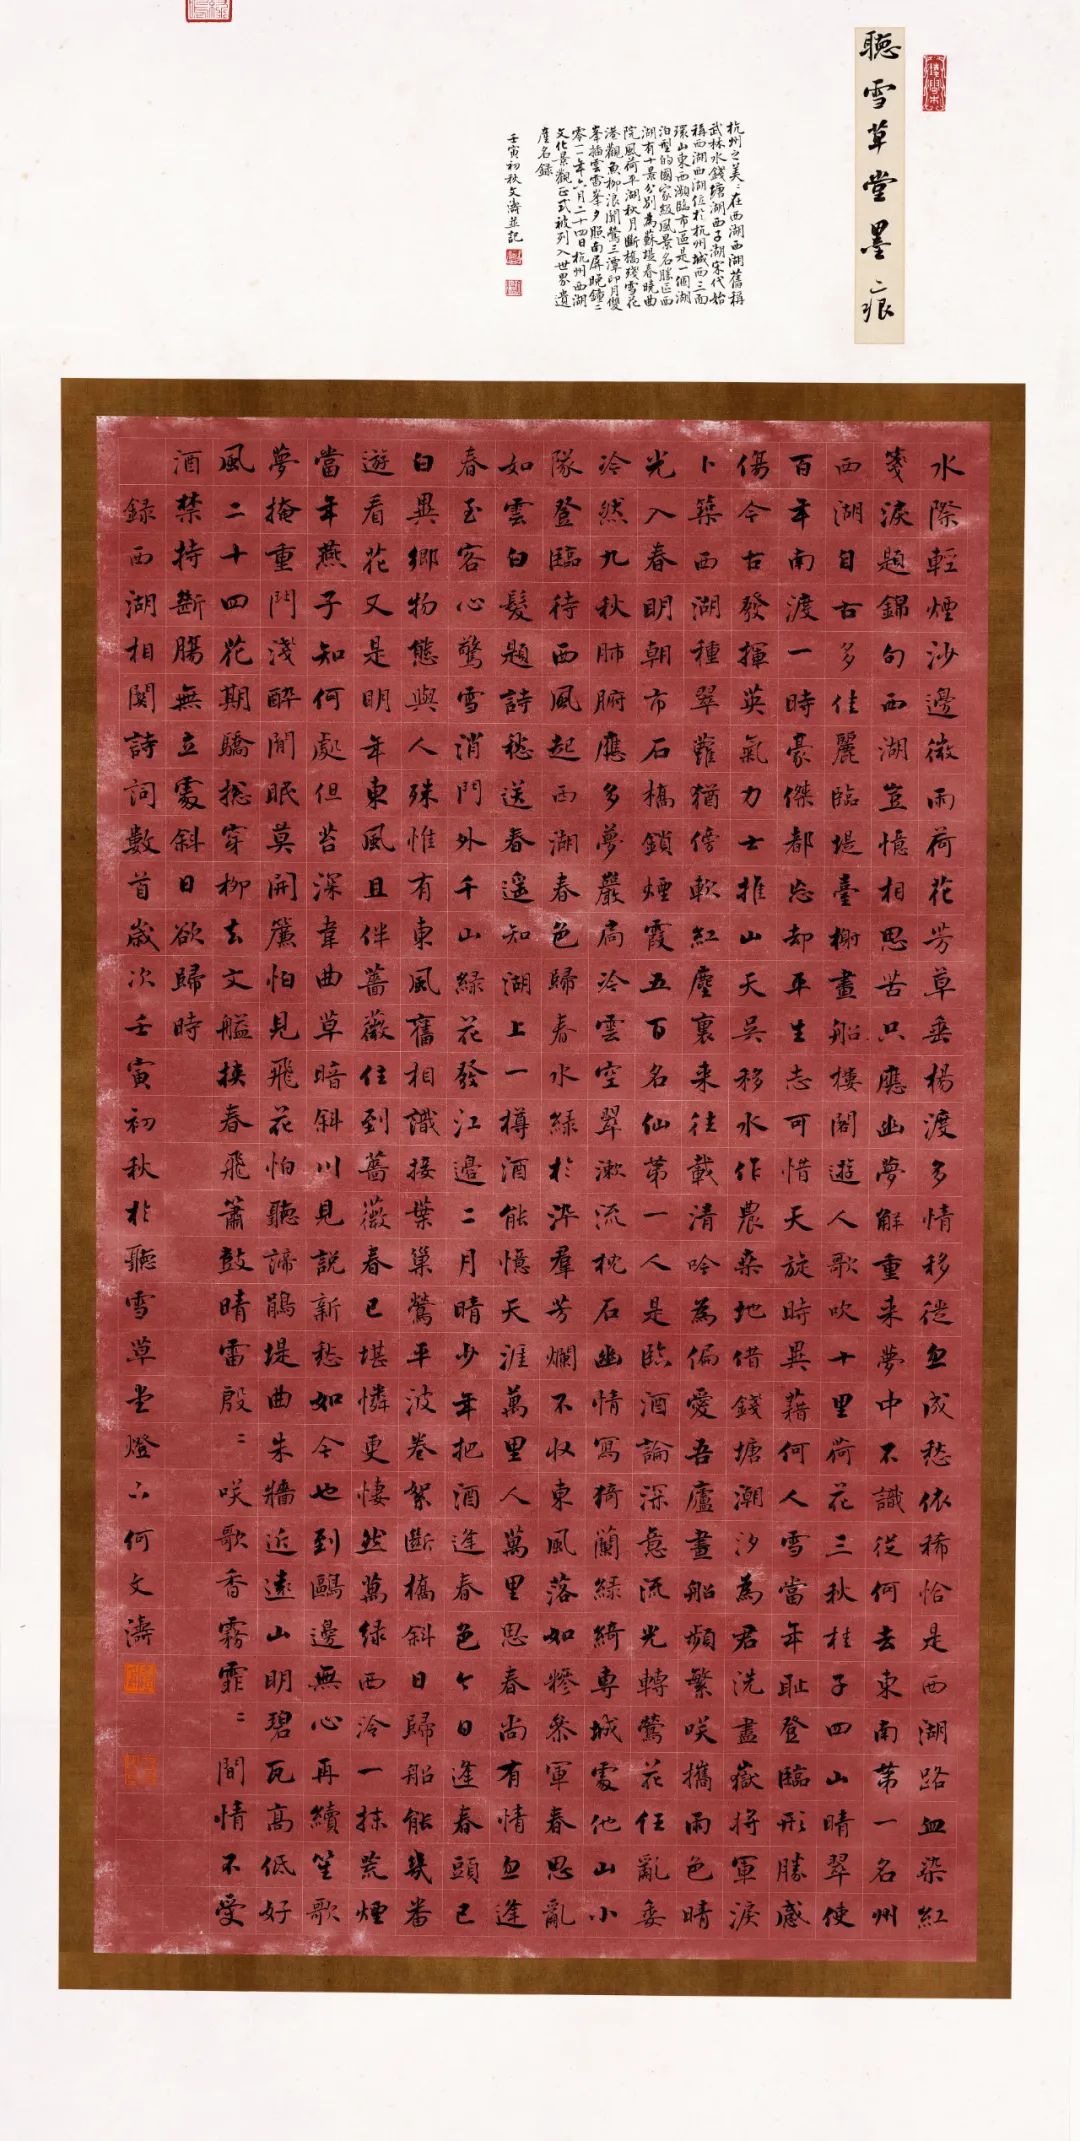 聽雪草堂墨痕
杭州之美〻在西湖西湖舊稱
武林水錢塘湖西子湖宋代始
稱西湖西湖位於杭州城西三面
環山東西瀕臨市區是一個湖
泊型的國家級風景名勝區西
湖有十景分別為蘇堤春曉曲
院風荷平湖秋月斷橋殘雪花
港觀魚柳浪聞鶯三潭印月雙
峯插雲雷峯夕照南屏晚鐘二
零一一年六月二十四日杭州西湖
文化景觀正式被列入世界遺
產名錄
壬寅初秋文濤並記
水際輕煙沙邊微雨荷花芳草垂楊渡多情移徙忽成愁依稀恰是西湖路血染紅
箋淚題錦句西湖豈憶相思苦只應幽夢解重来夢中不識從何去東南第一名州
西湖自古多佳麗臨堤臺榭畫船樓閣遊人歌吹十里荷花三秋桂子四山晴翠使
百年南渡一時豪傑都忘却平生志可惜天旋時異藉何人雪當年耻登臨形勝感
傷今古發揮英氣力士推山天吳移水作農桑地借錢塘潮汐為君洗盡嶽將軍淚
卜築西湖種翠蘿猶傍軟紅塵裏来往載清吟為偏愛吾廬畫船頻繁咲攜雨色晴
光入春明朝市石橋鎖煙霞五百名仙第一人是臨酒論深意流光轉鶯花任亂委
冷然九秋肺腑應多夢嚴扃冷雲空翠漱流枕石幽情寫猗蘭緑綺専城處他山小
隊登臨待西風起西湖春色歸春水緑於染羣芳爛不收東風落如糝叅軍春思亂
如雲白髮題詩愁送春遥知湖上一樽酒能憶天涯萬里人萬里思春尚有情忽逢
春至客心驚雪消門外千山緑花發江邊二月晴少年把酒逢春色今日逢春頭已
白異鄉物態與人殊惟有東風舊相識接葉巢鶯平波卷絮斷橋斜日歸船能幾番
遊看花又是明年東風且伴薔薇住到薔薇春已堪憐更悽然萬緑西泠一抹荒煙
當年燕子知何處但苔深韋曲草暗斜川見説新愁如今也到鷗邊無心再續笙歌
夢掩重門淺醉閒眠莫開簾怕見飛花怕聽啼鵑堤曲朱牆近遠山明碧瓦高低好
風二十四花期驕驄穿柳去文艗挾春飛簫鼓晴雷殷〻咲歌香霧霏〻閒情不受
酒禁持斷腸無立處斜日欲歸時
録西湖相関詩詞數首歲次壬寅初秋於聽雪草堂燈下何文濤